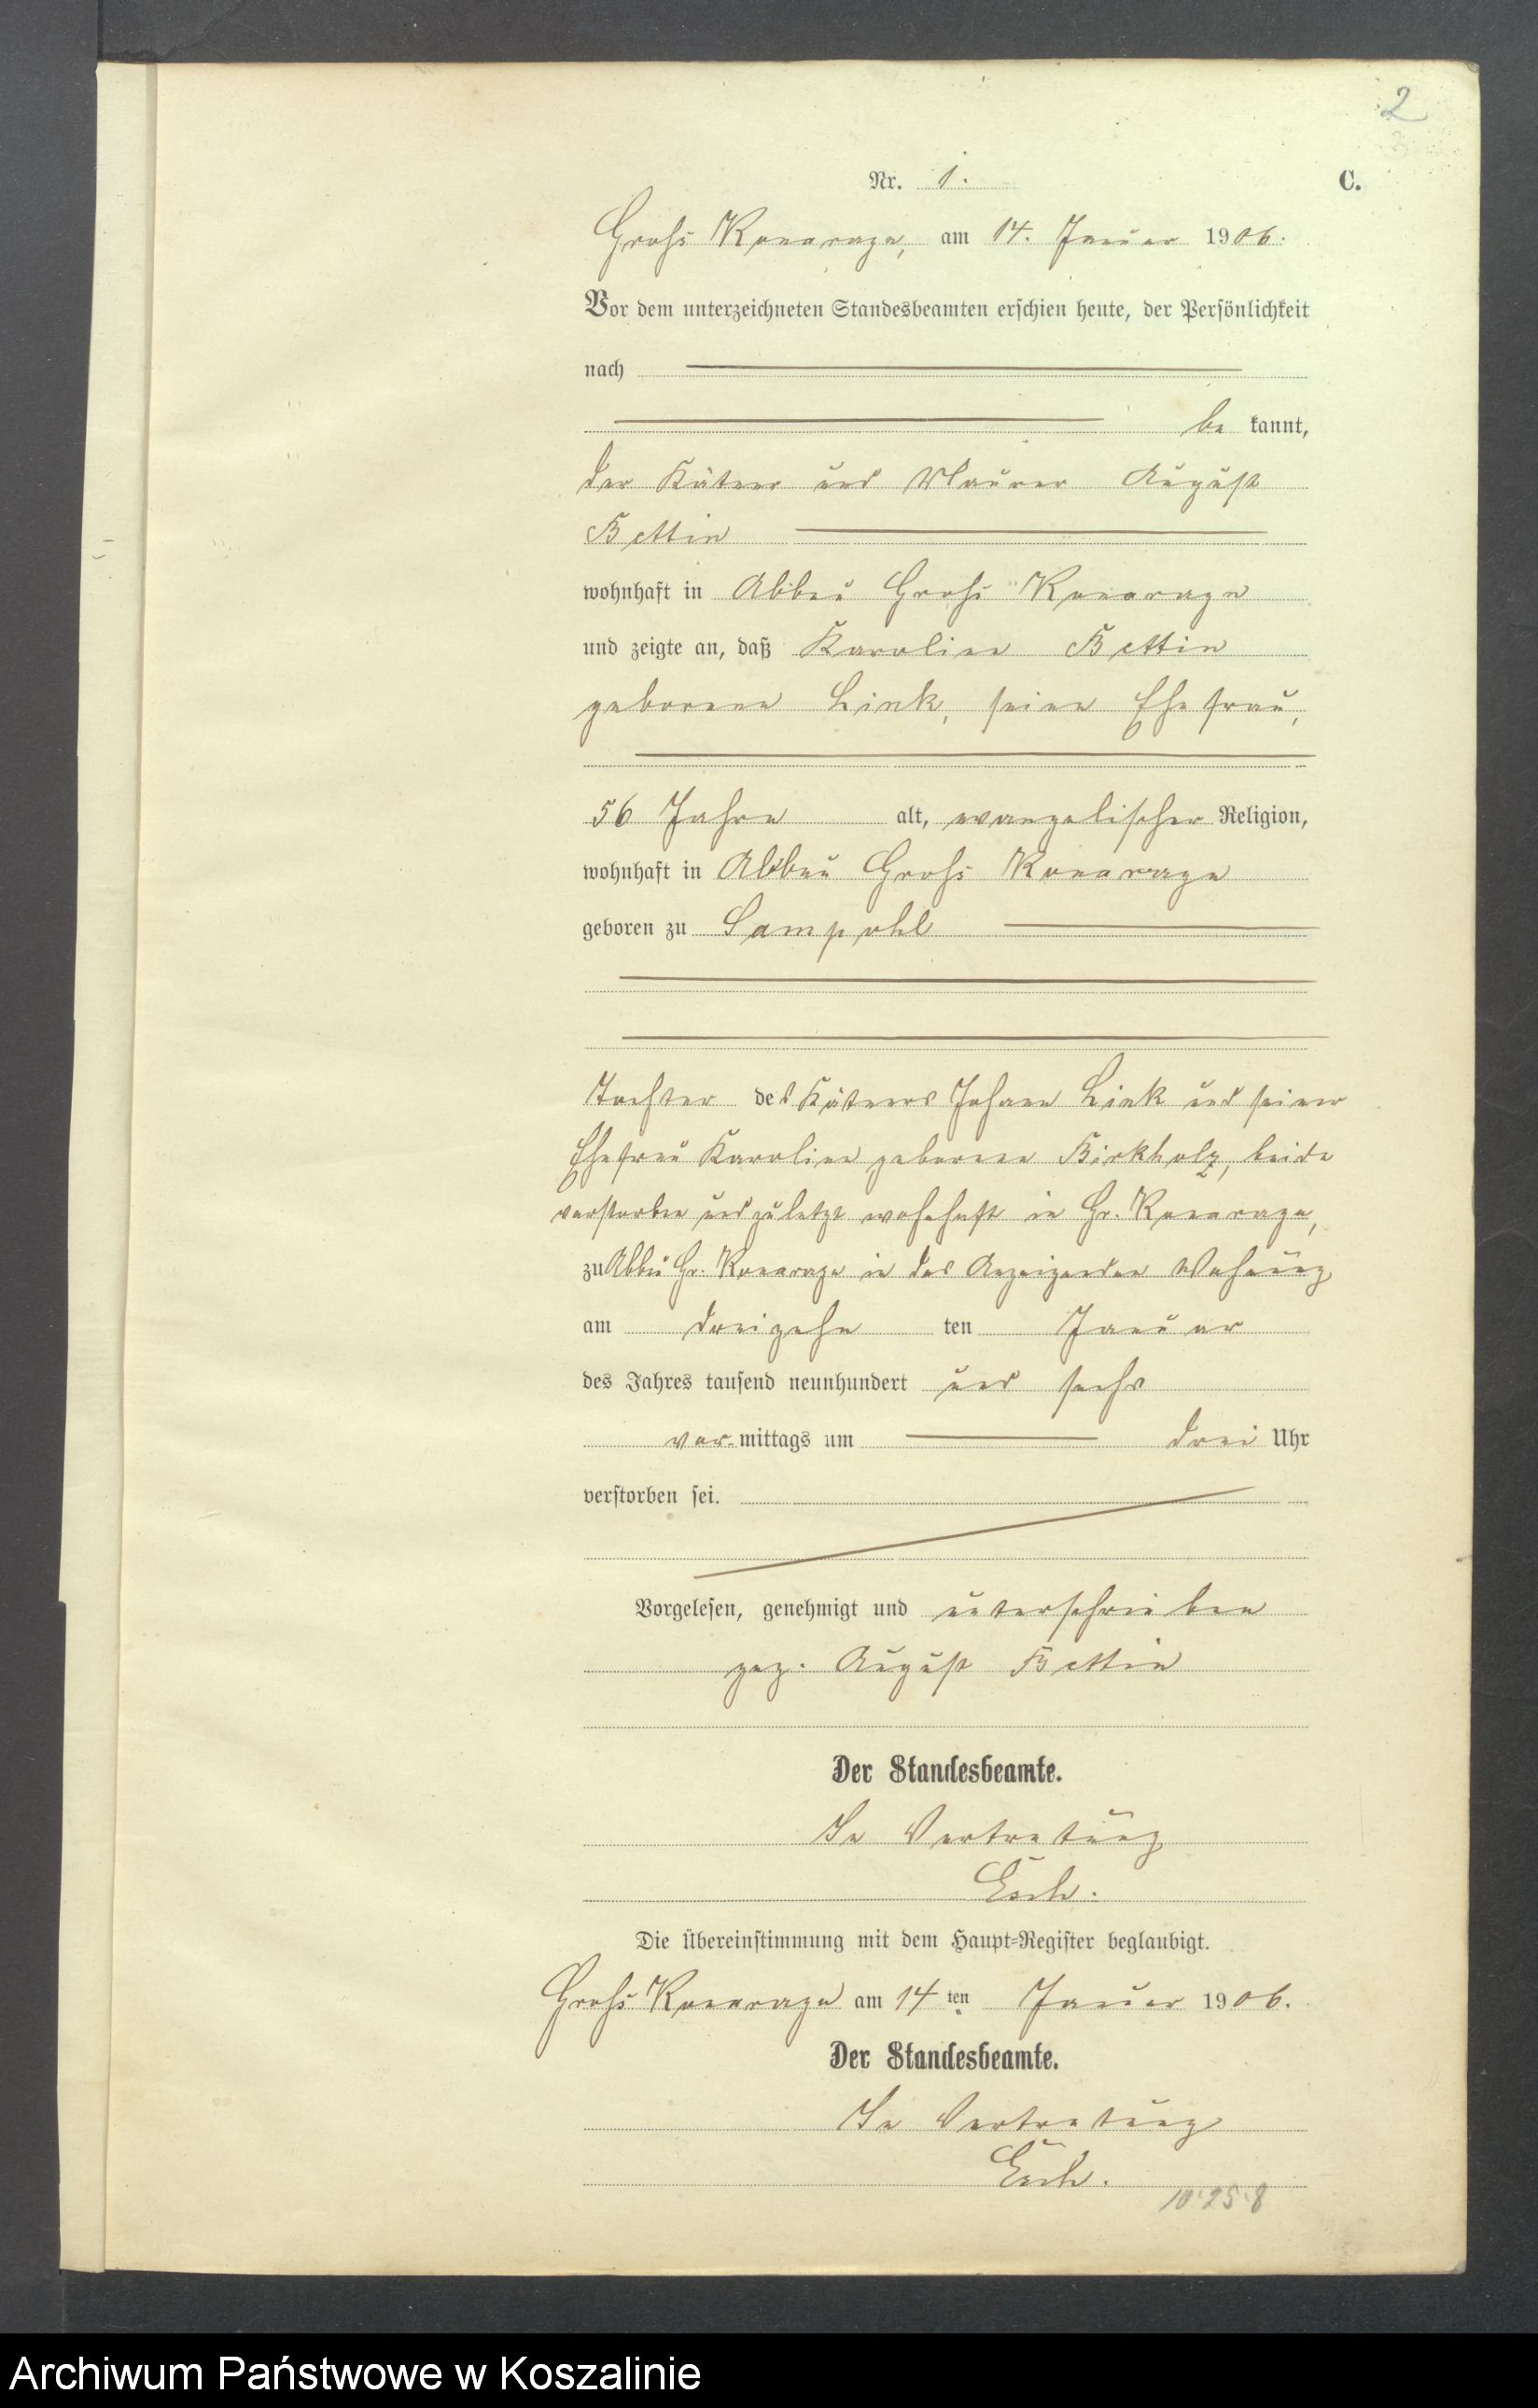 2
Nr. 1. C.
Groß Konarage, am 14. Januar 1906.
Vor dem unterzeichneten Standesbeamten erschien heute, der Persönlichkeit
nach
be kannt,
der Kätner und Maurer August
Bettin
wohnhaft in Abbau Groß Konarage
und zeigte an, daß Karoline Bettin
geborene Link, seine Ehefrau,
56 Jahre alt, evangelischer Religion,
wohnhaft in Abbau Groß Konarage
geboren zu Sampohl
Tochter des Kätners Johann Link und seiner
Ehefrau Karoline geborene Birkholz, beide
verstorben und zuletzt wohnhaft in Gr. Konarage,
zu Abbau Gr. Konarage in des Anzeigenden Wohnung
am dreizehn ten Januar
des Jahres tausend neunhundert und sechs
vor mittags um drei Uhr
verstorben sei.
Vorgelesen, genehmigt und unterschrieben
gez. August Bettin
Der Standesbeamte.
In Vertretung
Die Übereinstimmung mit dem Haupt-Register beglaubigt.
Groß Konarage am 14 ten Januar 1906.
Der Standesbeamte.
In Vertretung
10·25·8
Archiwum Państwowe w Koszalinie